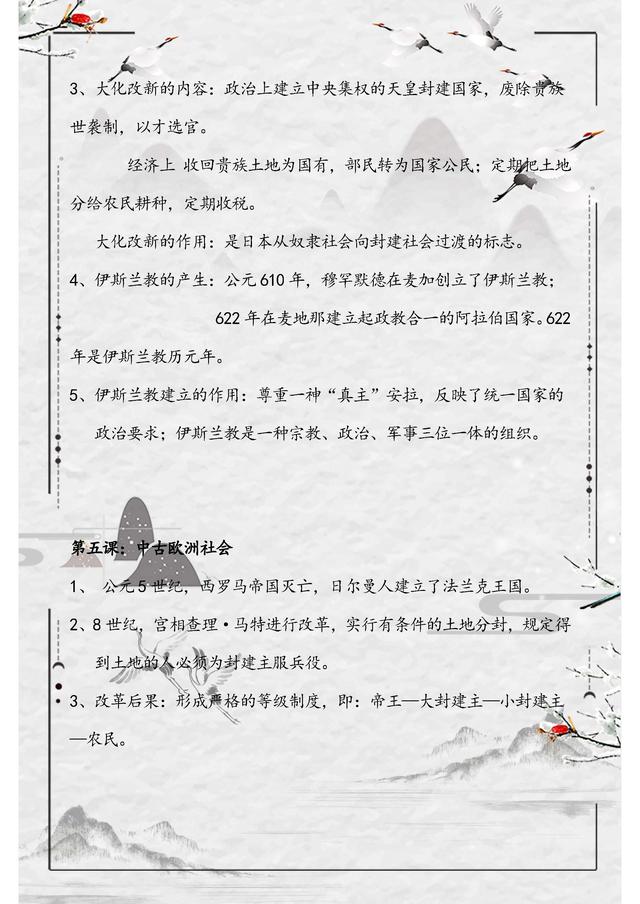 3、大化改新的内容：政治上建立中央集权的天皇封建国家，废除贵族
世袭制，以才选官。
经济上 收回贵族土地为国有，部民转为国家公民；定期把土地
分给农民耕种，定期收税。
大化改新的作用：是日本从奴隶社会向封建社会过渡的标志。
4、伊斯兰教的产生：公元 610 年，穆罕默德在麦加创立了伊斯兰教；
622 年在麦地那建立起政教合一的阿拉伯国家。622
年是伊斯兰教历元年。
5、伊斯兰教建立的作用：尊重一神“真主”安拉，反映了统一国家的
政治要求；伊斯兰教是一种宗教、政治、军事三位一体的组织。
第五课：中古欧洲社会
1、 公元 5 世纪，西罗马帝国灭亡，日尔曼人建立了法兰克王国。
2、8 世纪，宫相查理·马特进行改革，实行有条件的土地分封，规定得
到土地的人必须为封建主服兵役。
3、改革后果：形成严格的等级制度，即：帝王—大封建主—小封建主
—农民。